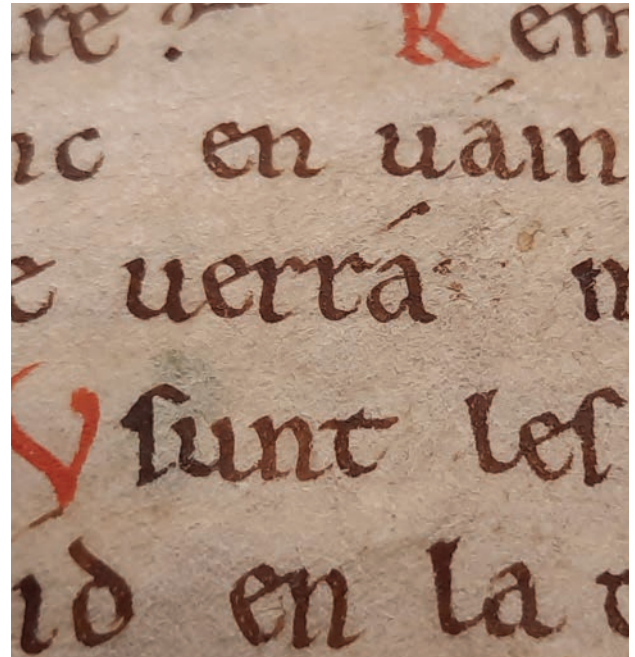 re Rem
ic en uáin
e uerrá m
V sunt les
id en la